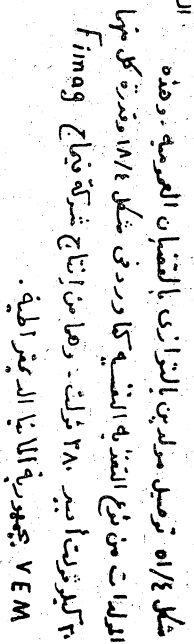 شكل ٥١/٤ توصيل مولدين بالتوازى بالقضبان العمومية. وهذه
المولدات من نوع التغذية النفسية كما ورد فى شكل ١٨/٤ وقدرة كل منها
٣٠ كيلو فولت أمبير ٣٨٠ فولت - وهما من إنتاج شركة فيماج Fimag
VEM بجمهورية ألمانيا الديمقراطية.